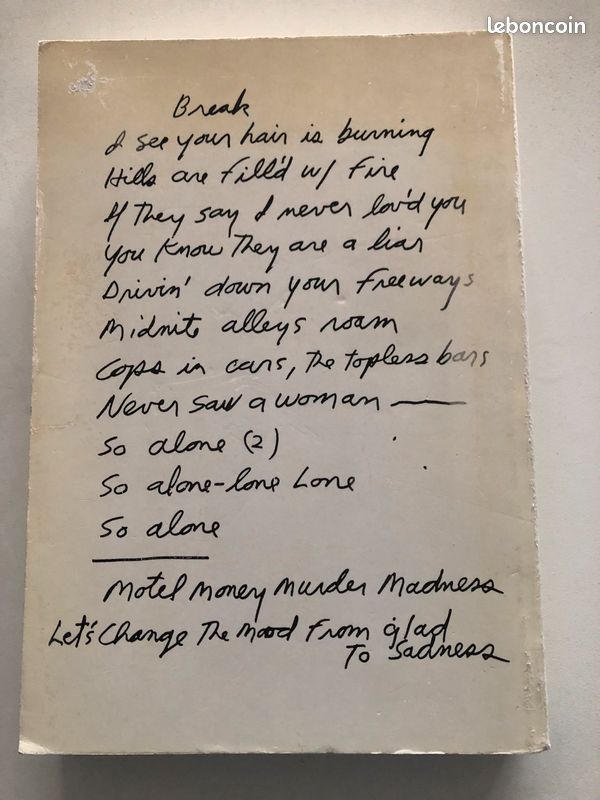 leboncoin
Break
I see your hair is burning
Hills are fill'd w/ fire
If they say I never lov'd you
You know they are a liar
Drivin' down your freeways
Midnite alleys roam
Cops in cars, the topless bars
Never saw a woman —
So alone (2)
So alone-lone Lone
So alone
Motel Money Murder Madness
Let's Change The Mood From glad
To Sadness